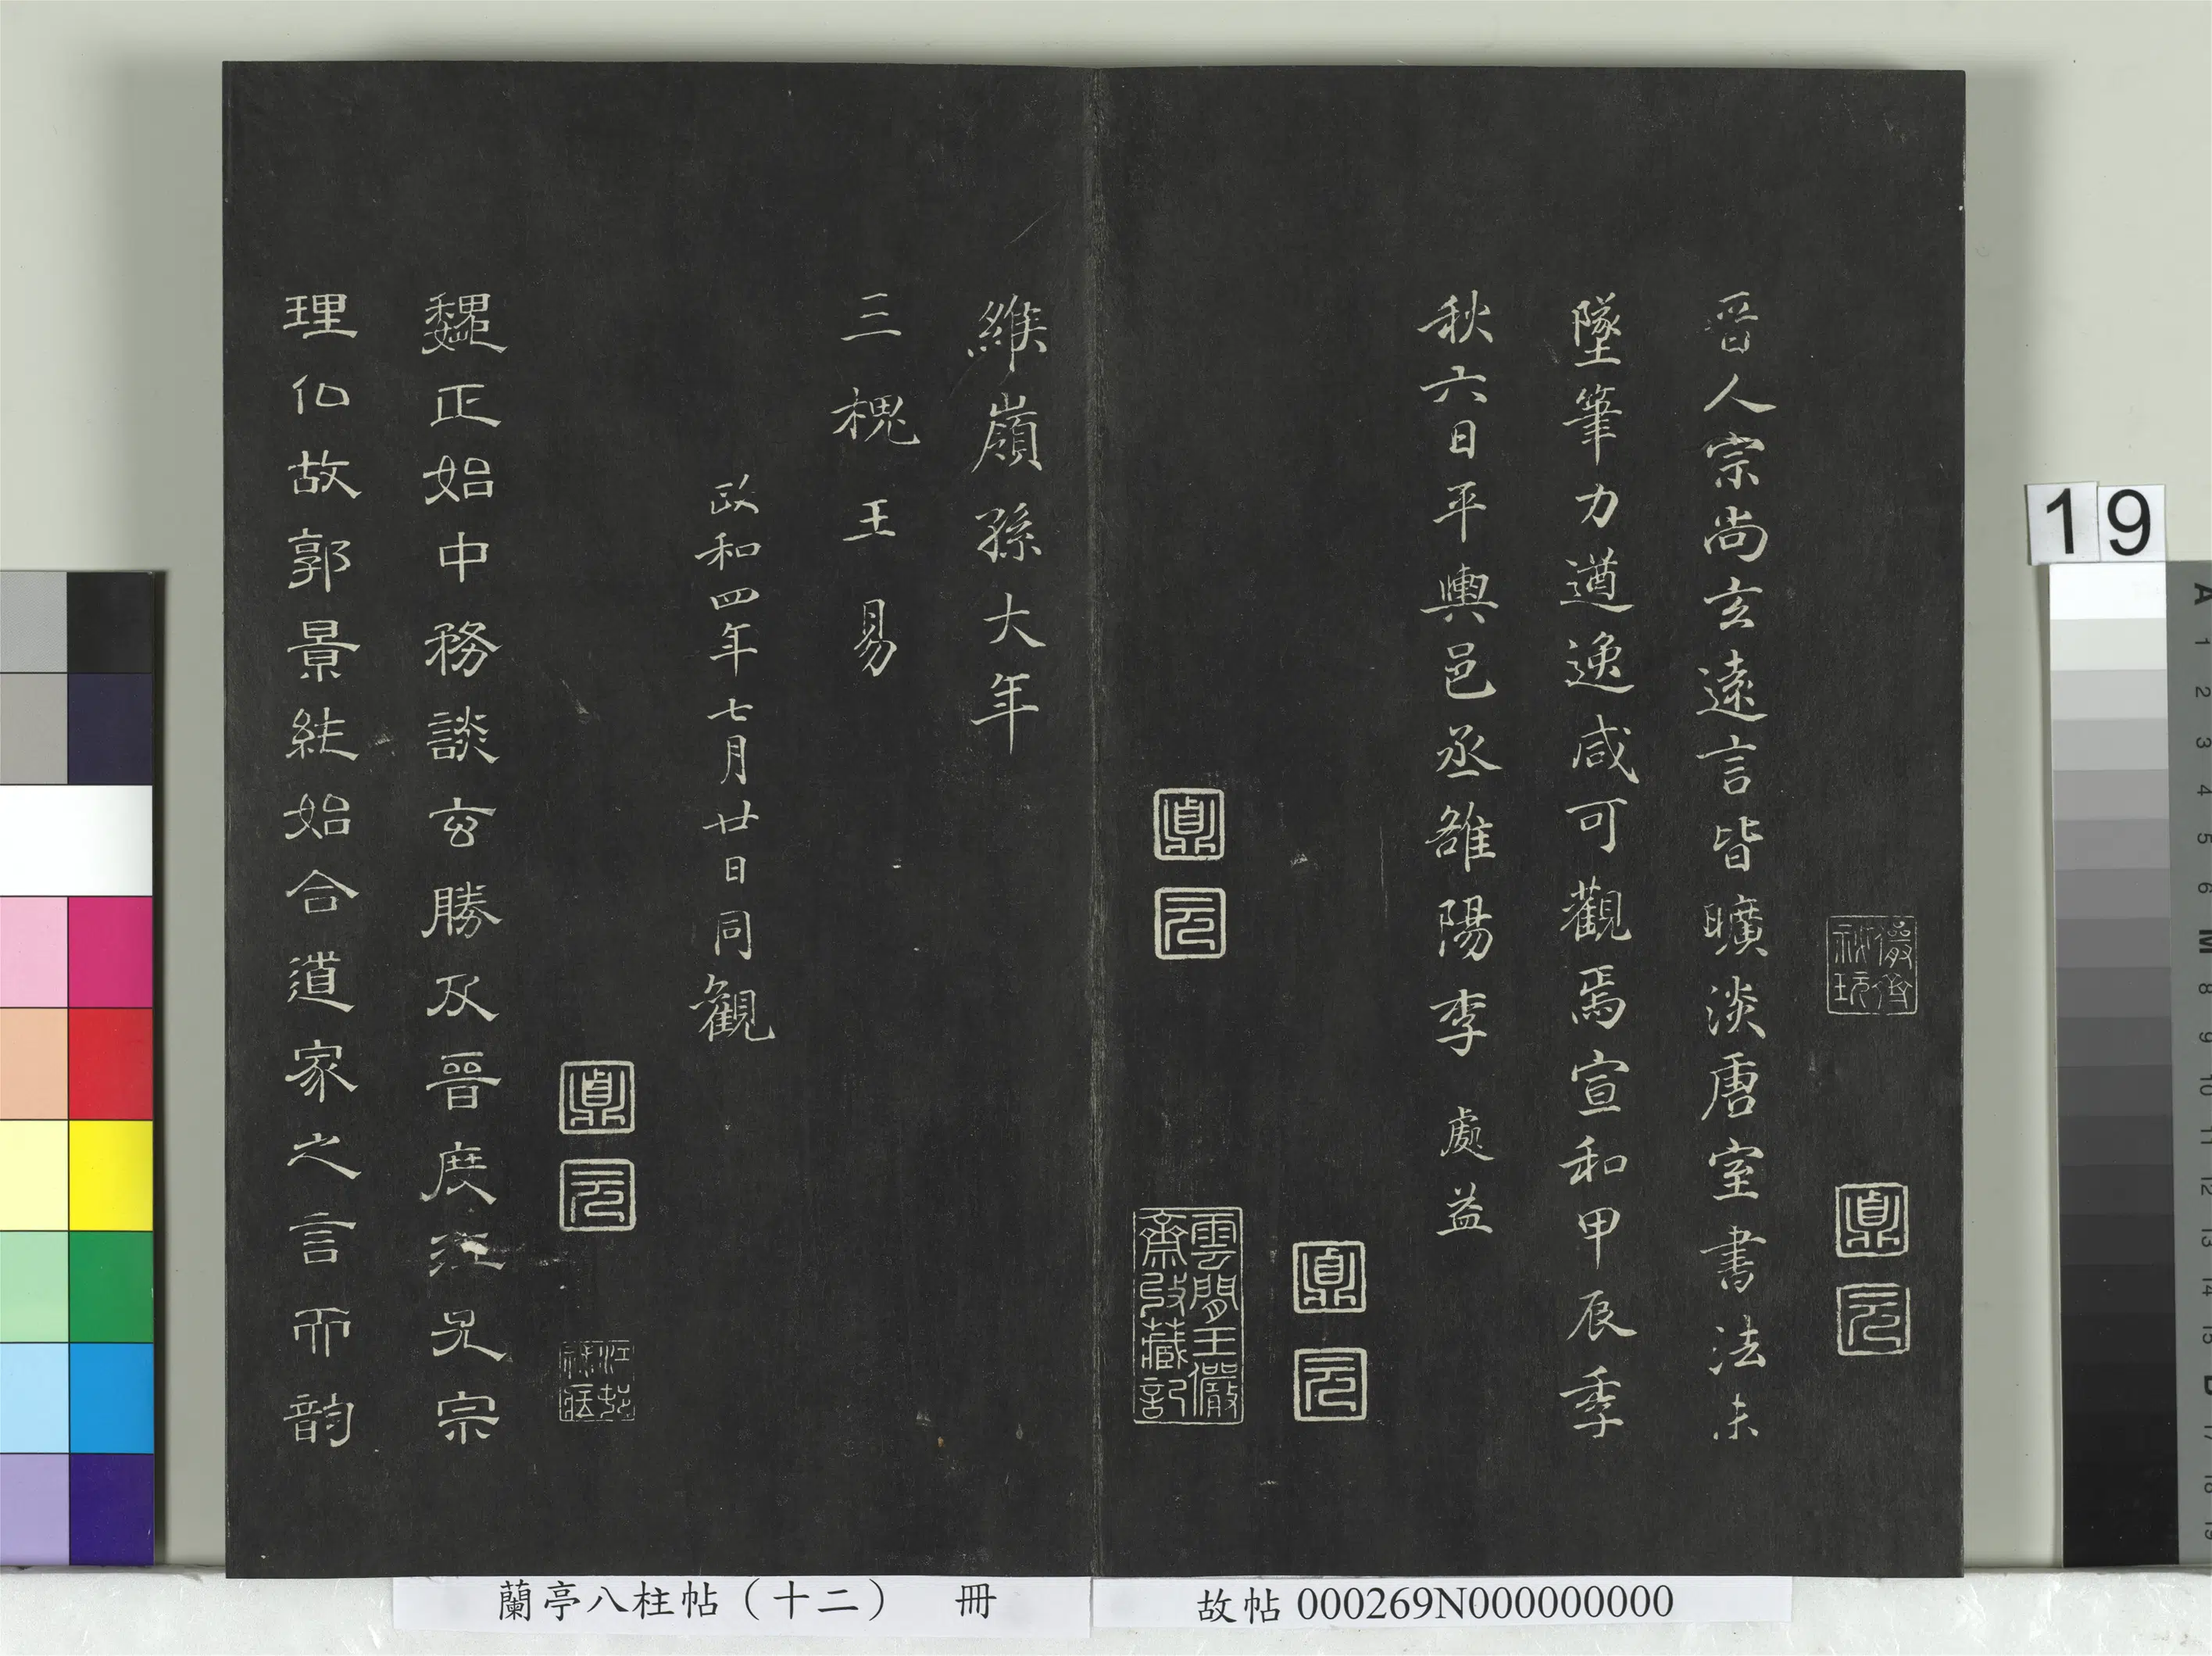 晉人宗尚玄遠言皆曠淡唐室書法未
墜筆力遒逸咸可觀焉宣和甲辰季
秋六日平輿邑丞雒陽李處益
鼎
元
鼎
元
鼎
元
雲間王儼
齋收藏記
維嶺孫大年
三槐王易
政和四年七月廿日同觀
鼎
元
魏正始中務談玄勝及晉度江尤宗
理仏故郭景純始合道家之言而韵
蘭亭八柱帖（十二） 冊
故帖 000269N000000000
19